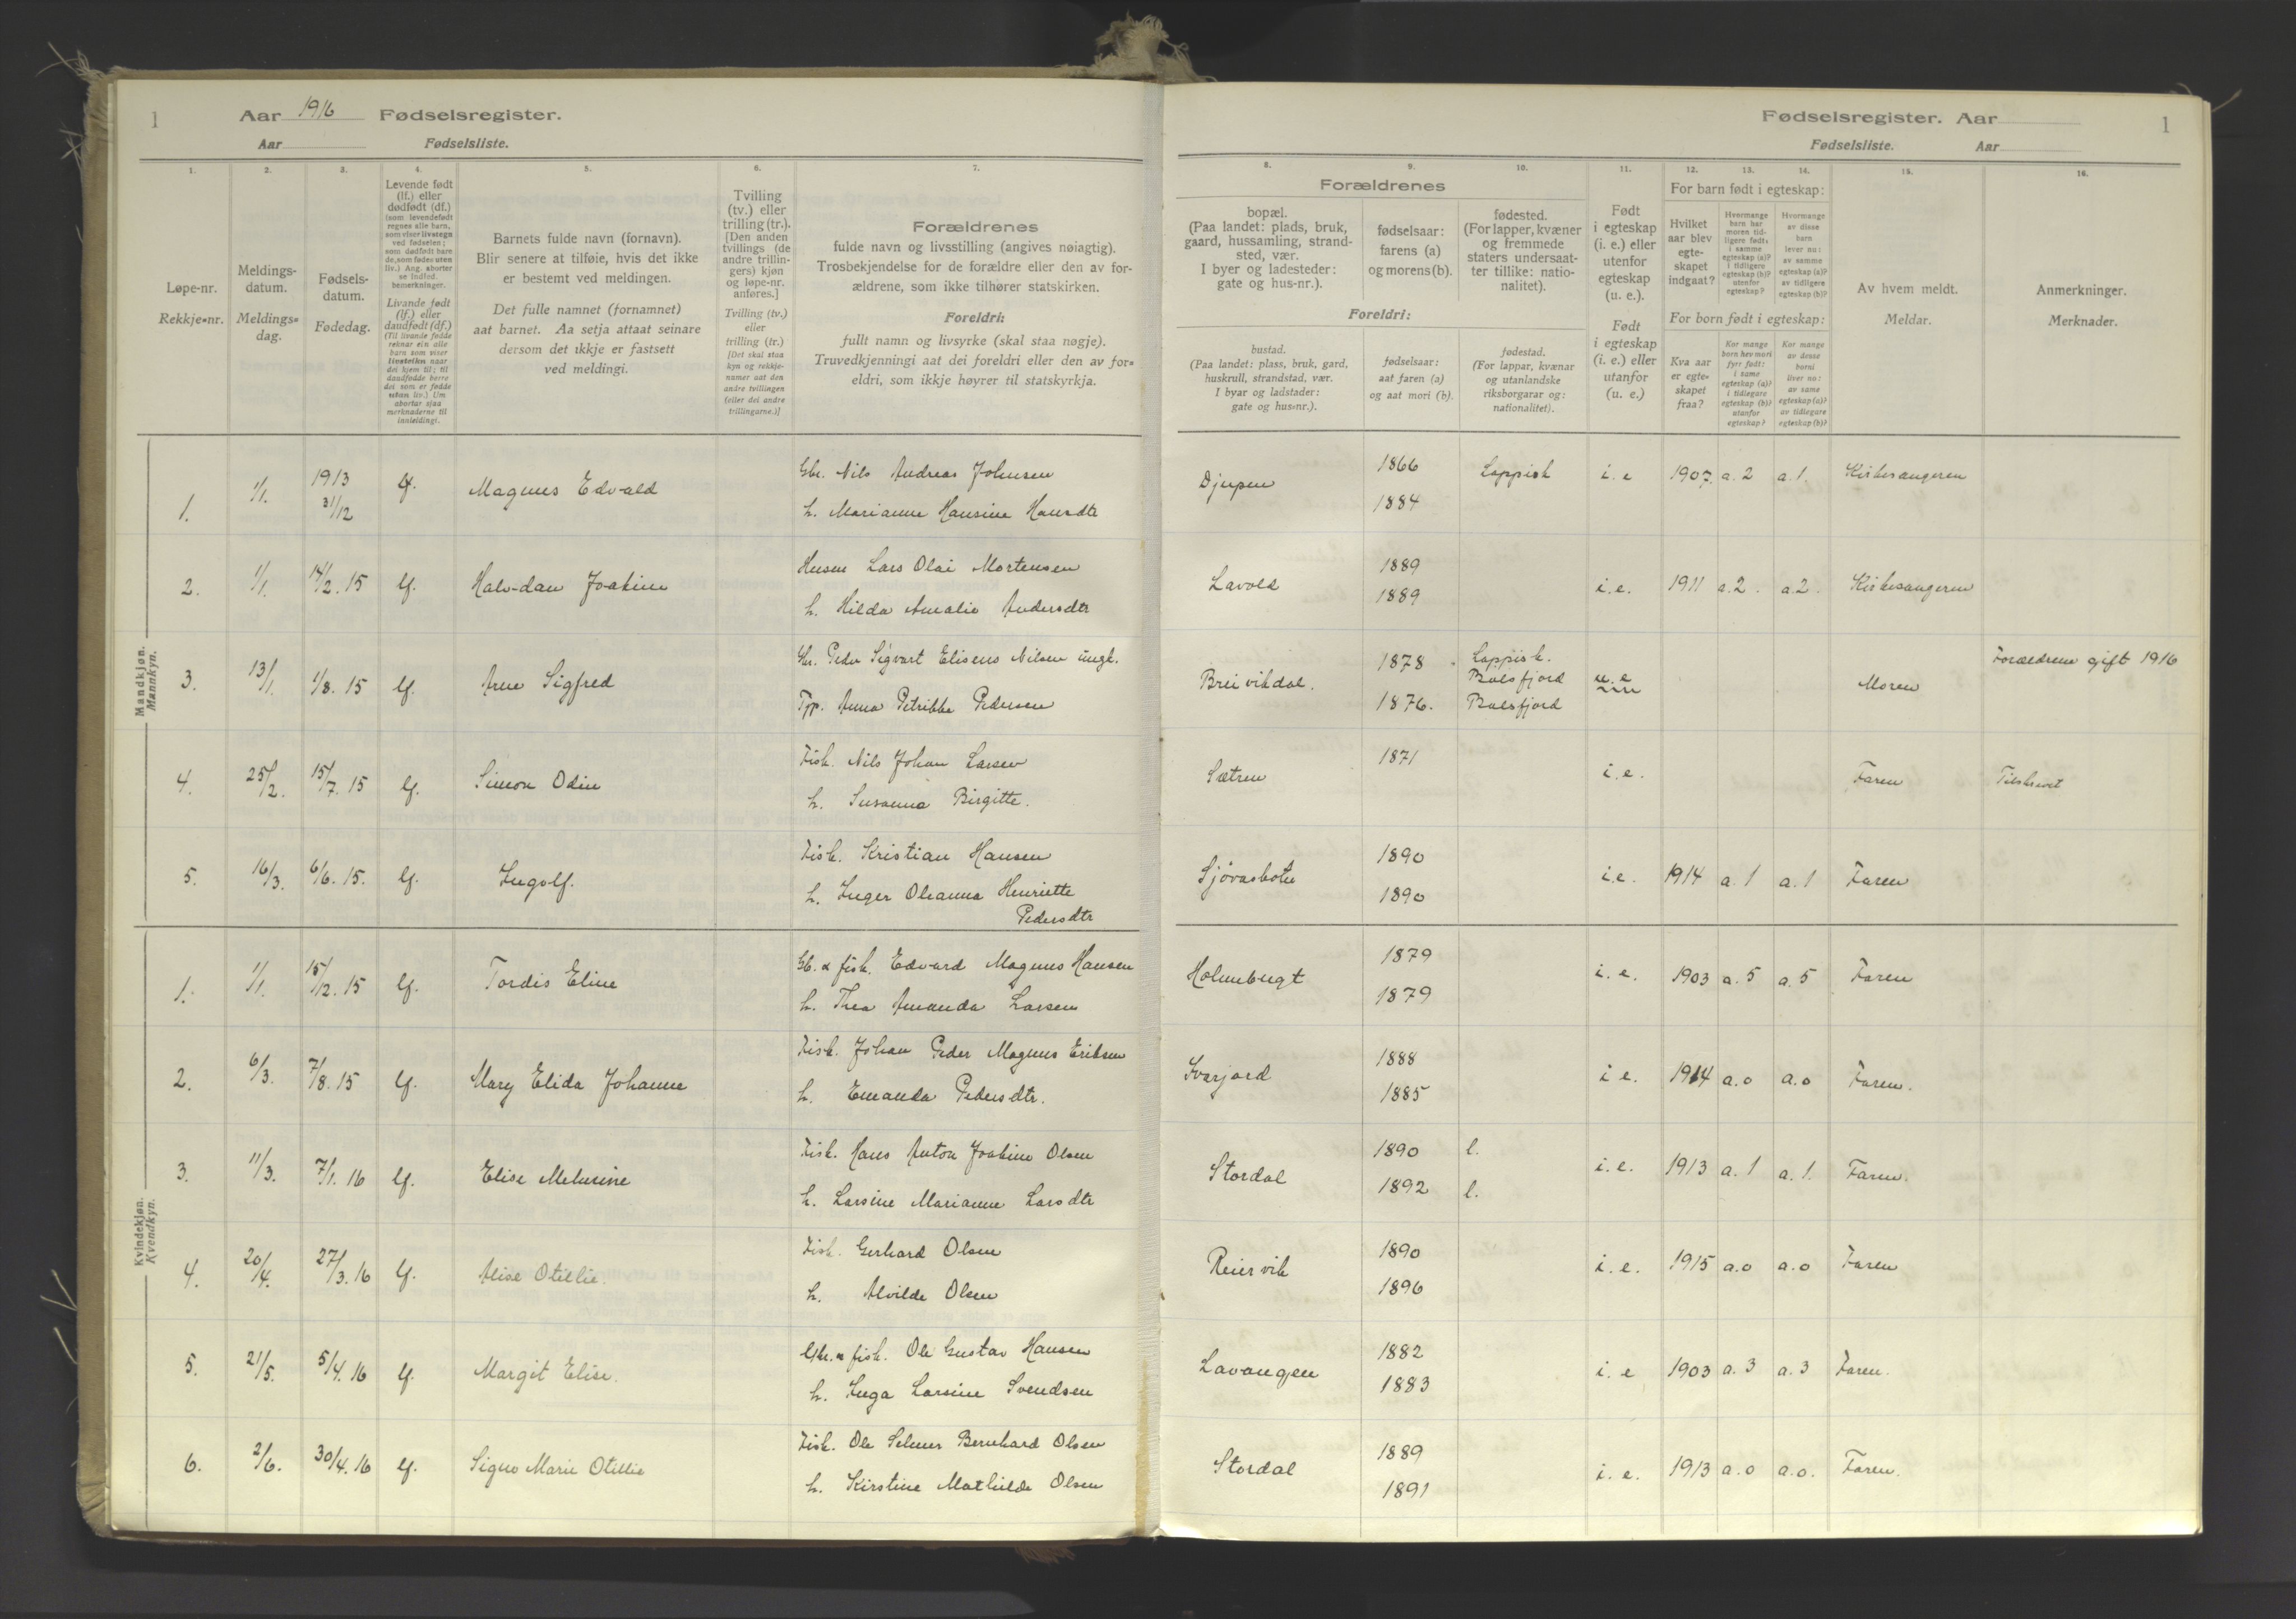 1 Aar 1916 Fødselsregister.
Aar Fødselsliste.
1.
Løpe-nr.
Rekkje-nr.
2.
Meldings-
datum.
Meldings-
dag.
3.
Fødsels-
datum.
Fødedag.
4.
Levende født
(lf.) eller
dødfødt (df.)
(som levendefødt
regnes alle barn,
som viser livstegn
ved fødselen;
som dødfødt bare
de, som fødes uten
liv.) Ang. aborter
se indled.
bemerkninger.
Livande født
(lf.) eller
daudfødt (df.)
(Til livande fødde
reknar ein alle
barn som viser
livsteikn naar
dei kjem til; til
daudfødde berre
dei som er fødde
utan liv.) Um
abortar sjaa
merknaderne til
innleidingi.
5.
Barnets fulde navn (fornavn).
Blir senere at tilføie, hvis det ikke
er bestemt ved meldingen.
Det fulle namnet (fornamnet)
aat barnet. Aa setja attaat seinare
dersom det ikkje er fastsett
ved meldingi.
6.
Tvilling
(tv.) eller
trilling (tr.).
[Den anden
tvillings (de
andre trillin-
gers) kjøn
og løpe-nr.
anføres.]
Tvilling (tv.)
eller
trilling (tr.)
[Det skal staa
kyn og rekkje-
numer aat den
andre tvillingen
(eller dei andre
trillingarne.)]
7.
Forældrenes
fulde navn og livsstilling (angives nøiagtig).
Trosbekjendelse for de forældre eller den av for-
ældrene, som ikke tilhører statskirken.
Foreldri:
fullt namn og livsyrke (skal staa nøgje).
Truvedkjenningi aat dei foreldri eller den av for-
eldri, som ikkje høyrer til statskyrkja.
Fødselsregister. Aar 1
Fødselsliste. Aar
8.
Forældrenes
bopæl.
(Paa landet: plads, bruk,
gaard, hussamling, strand-
sted, vær.
I byer og ladesteder:
gate og hus-nr.).
Foreldri:
bustad.
(Paa landet: plass, bruk, gard,
huskrull, strandstad, vær.
I byar og ladstader:
gate og hus-nr.).
9.
fødselsaar:
farens (a)
og morens (b).
fødselsaar:
aat faren (a)
og aat mori (b).
10.
fødested.
(For lapper, kvæner
og fremmede
staters undersaat-
ter tillike: natio-
nalitet).
fødestad.
(For lappar, kvænar
og utanlandske
riksborgarar og:
nationalitet).
11.
Født
i egteskap
(i. e.) eller
utenfor
egteskap
(u. e.).
Født
i egteskap
(i. e.) eller
utanfor
(u. e.)
12. 13. 14.
For barn født i egteskap:
Hvilket
aar blev
egte-
skapet
indgaat?
Hvormange
barn har
moren tid-
ligere født:
i samme
egteskap (a)?
i tidligere
egteskap (b)?
utenfor
egteskap?
Hvormange
av disse
barn
lever nu:
av samme
egteskap (a)?
av tidligere
egteskap (b)?
For born født i egteskap:
Kva aar
er egte-
skapet
fraa?
Kor mange
born hev mori
fyrr født:
i same
egteskap (a)?
i tidlegare
egteskap (b)?
utanfor
egteskap?
Kor mange
av desse
borni
liver no:
av same
egteskap (a)?
av tidlegare
egteskap (b)?
15.
Av hvem meldt.
Meldar.
16.
Anmerkninger.
Merknader.
Mandkjøn.
Mannkyn.
1. 1/1. 1913 31/12 lf. Magnus Edvald
Gbr. Nils Andreas Johnsen
h. Marianne Hansine Hansdtr
Djupen 1866 1884 Lappisk i. e 1907. a. 2 a. 1. Kirkesangeren
2. 1/1. 14/2. 15 lf. Halvdan Joakim
Husm Lars Olai Mortensen
h. Hilda Amalie Andersdtr
Lavold 1889 1889 i. e. 1911 a. 2. a. 2. Kirkesangeren
3. 13/1. 1/8. 15 lf. Arne Sigfred
Gbr. Peder Sigvart Elisens Nilsen ungk.
Tjp. Anna Petrikke Pedersen
Breivikdal. 1878 1876. Lappisk. Balsfjord Balsfjord u. e Moren Forældrene gift 1916
4. 25/2. 15/7. 15 lf. Simon Odin
Fisk. Nils Johan Larsen
h. Susanna Birgitte.
Sætren 1871 i. e. Faren Tilskrevet
5. 16/3. 6/6. 15. lf. Ingolf.
Fisk. Kristian Hansen
h. Inger Oleanna Henriette
Pedersdtr
Sjövasbotn 1890 1890 i. e. 1914 a. 1 a. 1 Faren
Kvindekjøn.
Kvendkyn.
1. 1/1. 15/12. 15 lf. Tordis Eline
Gb. & fisk. Edvard Magnus Hansen
h. Thea Amanda Larsen
Holmbugt 1879 1879 i. e. 1903 a. 5 a. 5 Faren
2. 6/3. 7/8. 15 lf. Mary Elida Johanne
Fisk. Johan Peder Magnus Eriksen
h. Emanda Pedersdtr.
Svarjord 1888 1885 i e. 1914 a. 0 a. 0 Faren.
3. 11/3. 7/1. 16 lf. Elise Melusine
Fisk. Hans Anton Joakim Olsen
h. Larsine Marianne Larsdtr
Stordal 1890 l. 1892 l. i. e. 1913 a. 1 a. 1. Faren.
4. 20/4. 27/3. 16 lf. Alise Otellie.
Fisk. Gerhard Olsen
h. Alvilde Olsen
Reiervik 1890 1896 i. e. 1915 a. 0 a. 0 Faren
5. 21/5. 5/4. 16 lf. Margit Elise.
Gbr. & fisk. Ole Gustav Hansen
h. Inga Larsine Svendsen
Lavangen 1882 1883 i. e 1903 a. 3 a. 3 Faren.
6. 2/6. 30/4. 16 lf. Signe Marie Otellie
Fisk. Ole Selmer Bernhard Olsen
h. Kirstine Mathilde Olsen
Stordal 1889 1891 i. e. 1913 a. 0 a. 0. Faren.